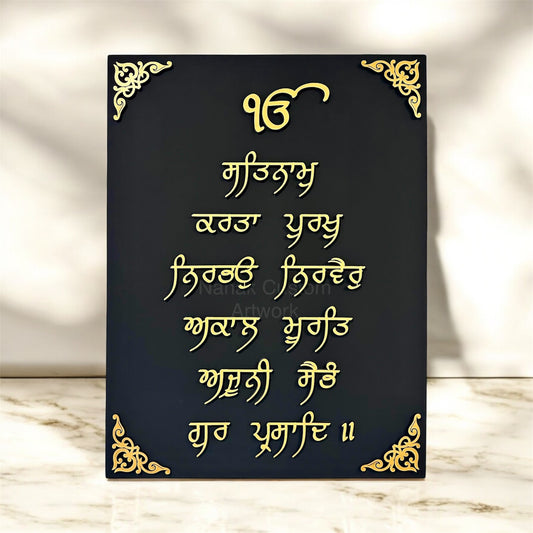 ੴ
ਸਤਿਨਾਮੁ
ਕਰਤਾ ਪੁਰਖੁ
ਨਿਰਭਉ ਨਿਰਵੈਰੁ
Nanak Custom
Artwork
ਅਕਾਲ ਮੂਰਤਿ
ਅਜੂਨੀ ਸੈਭੰ
ਗੁਰ ਪ੍ਰਸਾਦਿ ॥